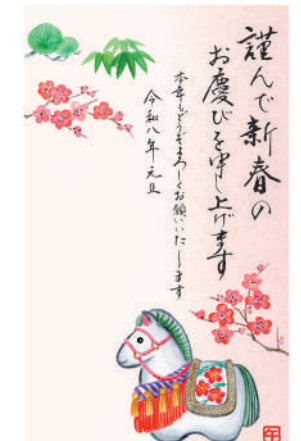 謹んで新春の
お慶びを申し上げます
本年もどうぞよろしくお願いいたします
令和八年元旦
午